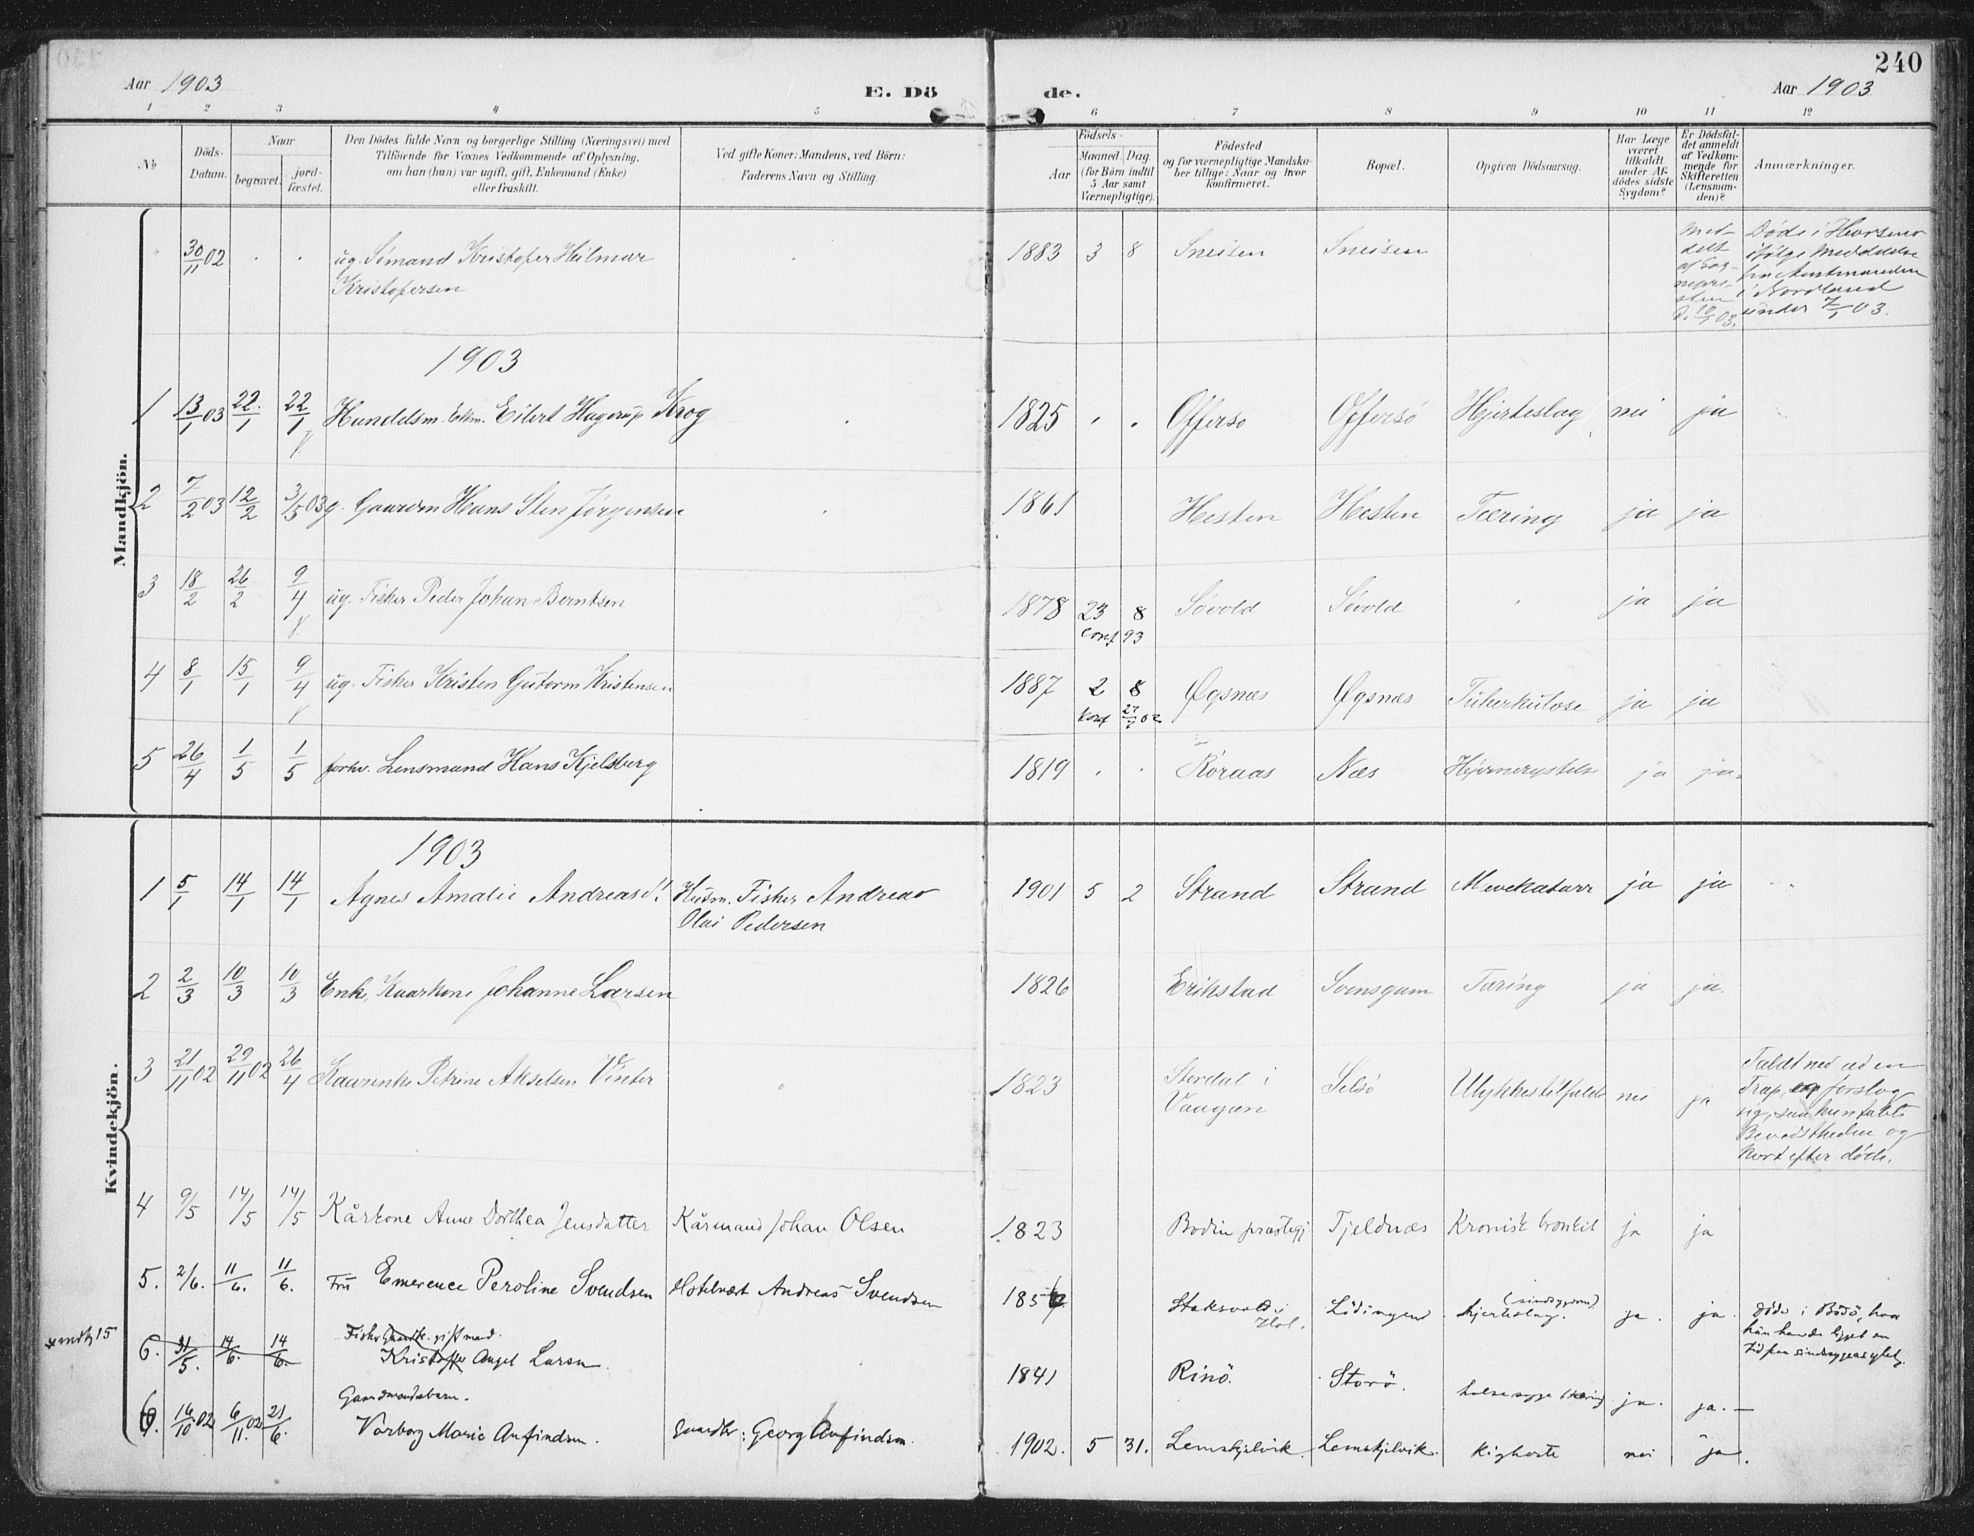 240
Aar 1903
E. Dö
de.
Aar 1903
1 2 3 4 5 6 7 8 9 10 11 12
No
Döds-
Datum.
Naar
begravet.
jord-
fæstet.
Den Dödes fulde Navn og borgerlige Stilling (Næringsvei) med
Tilföiende för Voxnes Vedkommende af Oplysning,
om han (hun) var ugift, gift, Enkemand (Enke)
eller fraskilt.
Ved gifte Koner: Mandens, ved Börn:
Faderens Navn og Stilling.
Födsels-
Aar
Maaned. Dag.
(for Börn indtil
5 Aar samt
Værnepligtige).
Födested
og for værnepligtige Mandska-
ber tillige: Naar og hvor
konfirmeret.
Bopæl.
Opgiven Dödsaarsag.
Har Læge
været
tilkaldt
under Af-
dödes sidste
Sygdom?
Er Dödsfal-
det anmeldt
af Vedkom-
mende for
Skifteretten
(Lensman-
den)?
Anmærkninger.
Mandkjön.
30/11 02 ug. Sømand Kristofer Hilmar
Kristofersen
1883 3 8 Sneisen Sneisen
Med-
delt
af Sog-
nepre-
sten
d. 10/1 03.
Døde i Horsens
ifølge Meddelelse
fra Amtmanden
i Nordland
under 7/1 03.
1903
1 13/1 03 22/1 22/1 Handelsm. Ekm. Eilert Hagerup Krog 1825 Offersø Offersø Hjerteslag nei ja
2 7/2 03 12/2 3/5 03 g. Gaardm Hans Sten Jørgensen 1861 Hesten Hesten Tæring ja ja
3 18/2 26/2 9/4 ug. Fisker Peder Johan Berntsen 1878 23 8 Søvold Søvold ja ja
conf 93
4 8/1 15/1 9/4 ug. Fisker Kristen Gutorm Kristensen 1887 2 8 Øgsnæs Øgsnæs Tuberkulose ja ja
konf 02
5 26/4 1/5 1/5 forhv. Lensmand Hans Kjelsberg 1819 Røraas Næs Hjernerystelse ja ja.
Kvindekjön.
1903
1 5/1 14/1 14/1 Agnes Amalie Andreasd. Husm. Fisker Andreas 1901 5 2 Strand Strand Mavekatarr ja ja
Olai Pedersen
2 2/3 10/3 10/3 Enke, Kaarkone Johanne Larsen 1826 Erikstad Svensgam Tæring ja ja.
3 21/11 02 29/11 02 26/4 Kaarenke Petrine Akselsen Vinter 1823 Stordal i
Vaagan Selsø Ulykkestilfælde nei ja
Faldt ned ad en
Trap, og forslog
sig, saa hun tabte
Bevidstheden og
kort efter døde.
4 9/5 14/5 14/5 Kårkone Anne Dorthea Jensdatter Kårmand Johan Olsen 1823 Bodin præstegj Tjeldnæs Kronisk bronkit ja ja
5. 2/6. 11/6. 11/6. Fru Emerence Peroline Svendsen Hotelvært Andreas Svendsen 185 i Hol. Lödingen (sindssygdom)
hjerteslag. ja. ja.
döde i Bodö, hvor
hun havde ligget en
tid paa sindssygeasylet.
6. 31/5. 14/6. 14/6. Fisker gift med.
Kristoffer Angel Larsen. 1841 Rinö. Storö. ja. ja. —
6. 16/10 02 6/11 02 21/6. Gaardmandsbarn.
Varborg Marie Anfindsen. Gaardbr: Georg Anfindsen. 1902. 5 31. Lemskjelvik. Lemskjelvik. Kighoste nei ja.